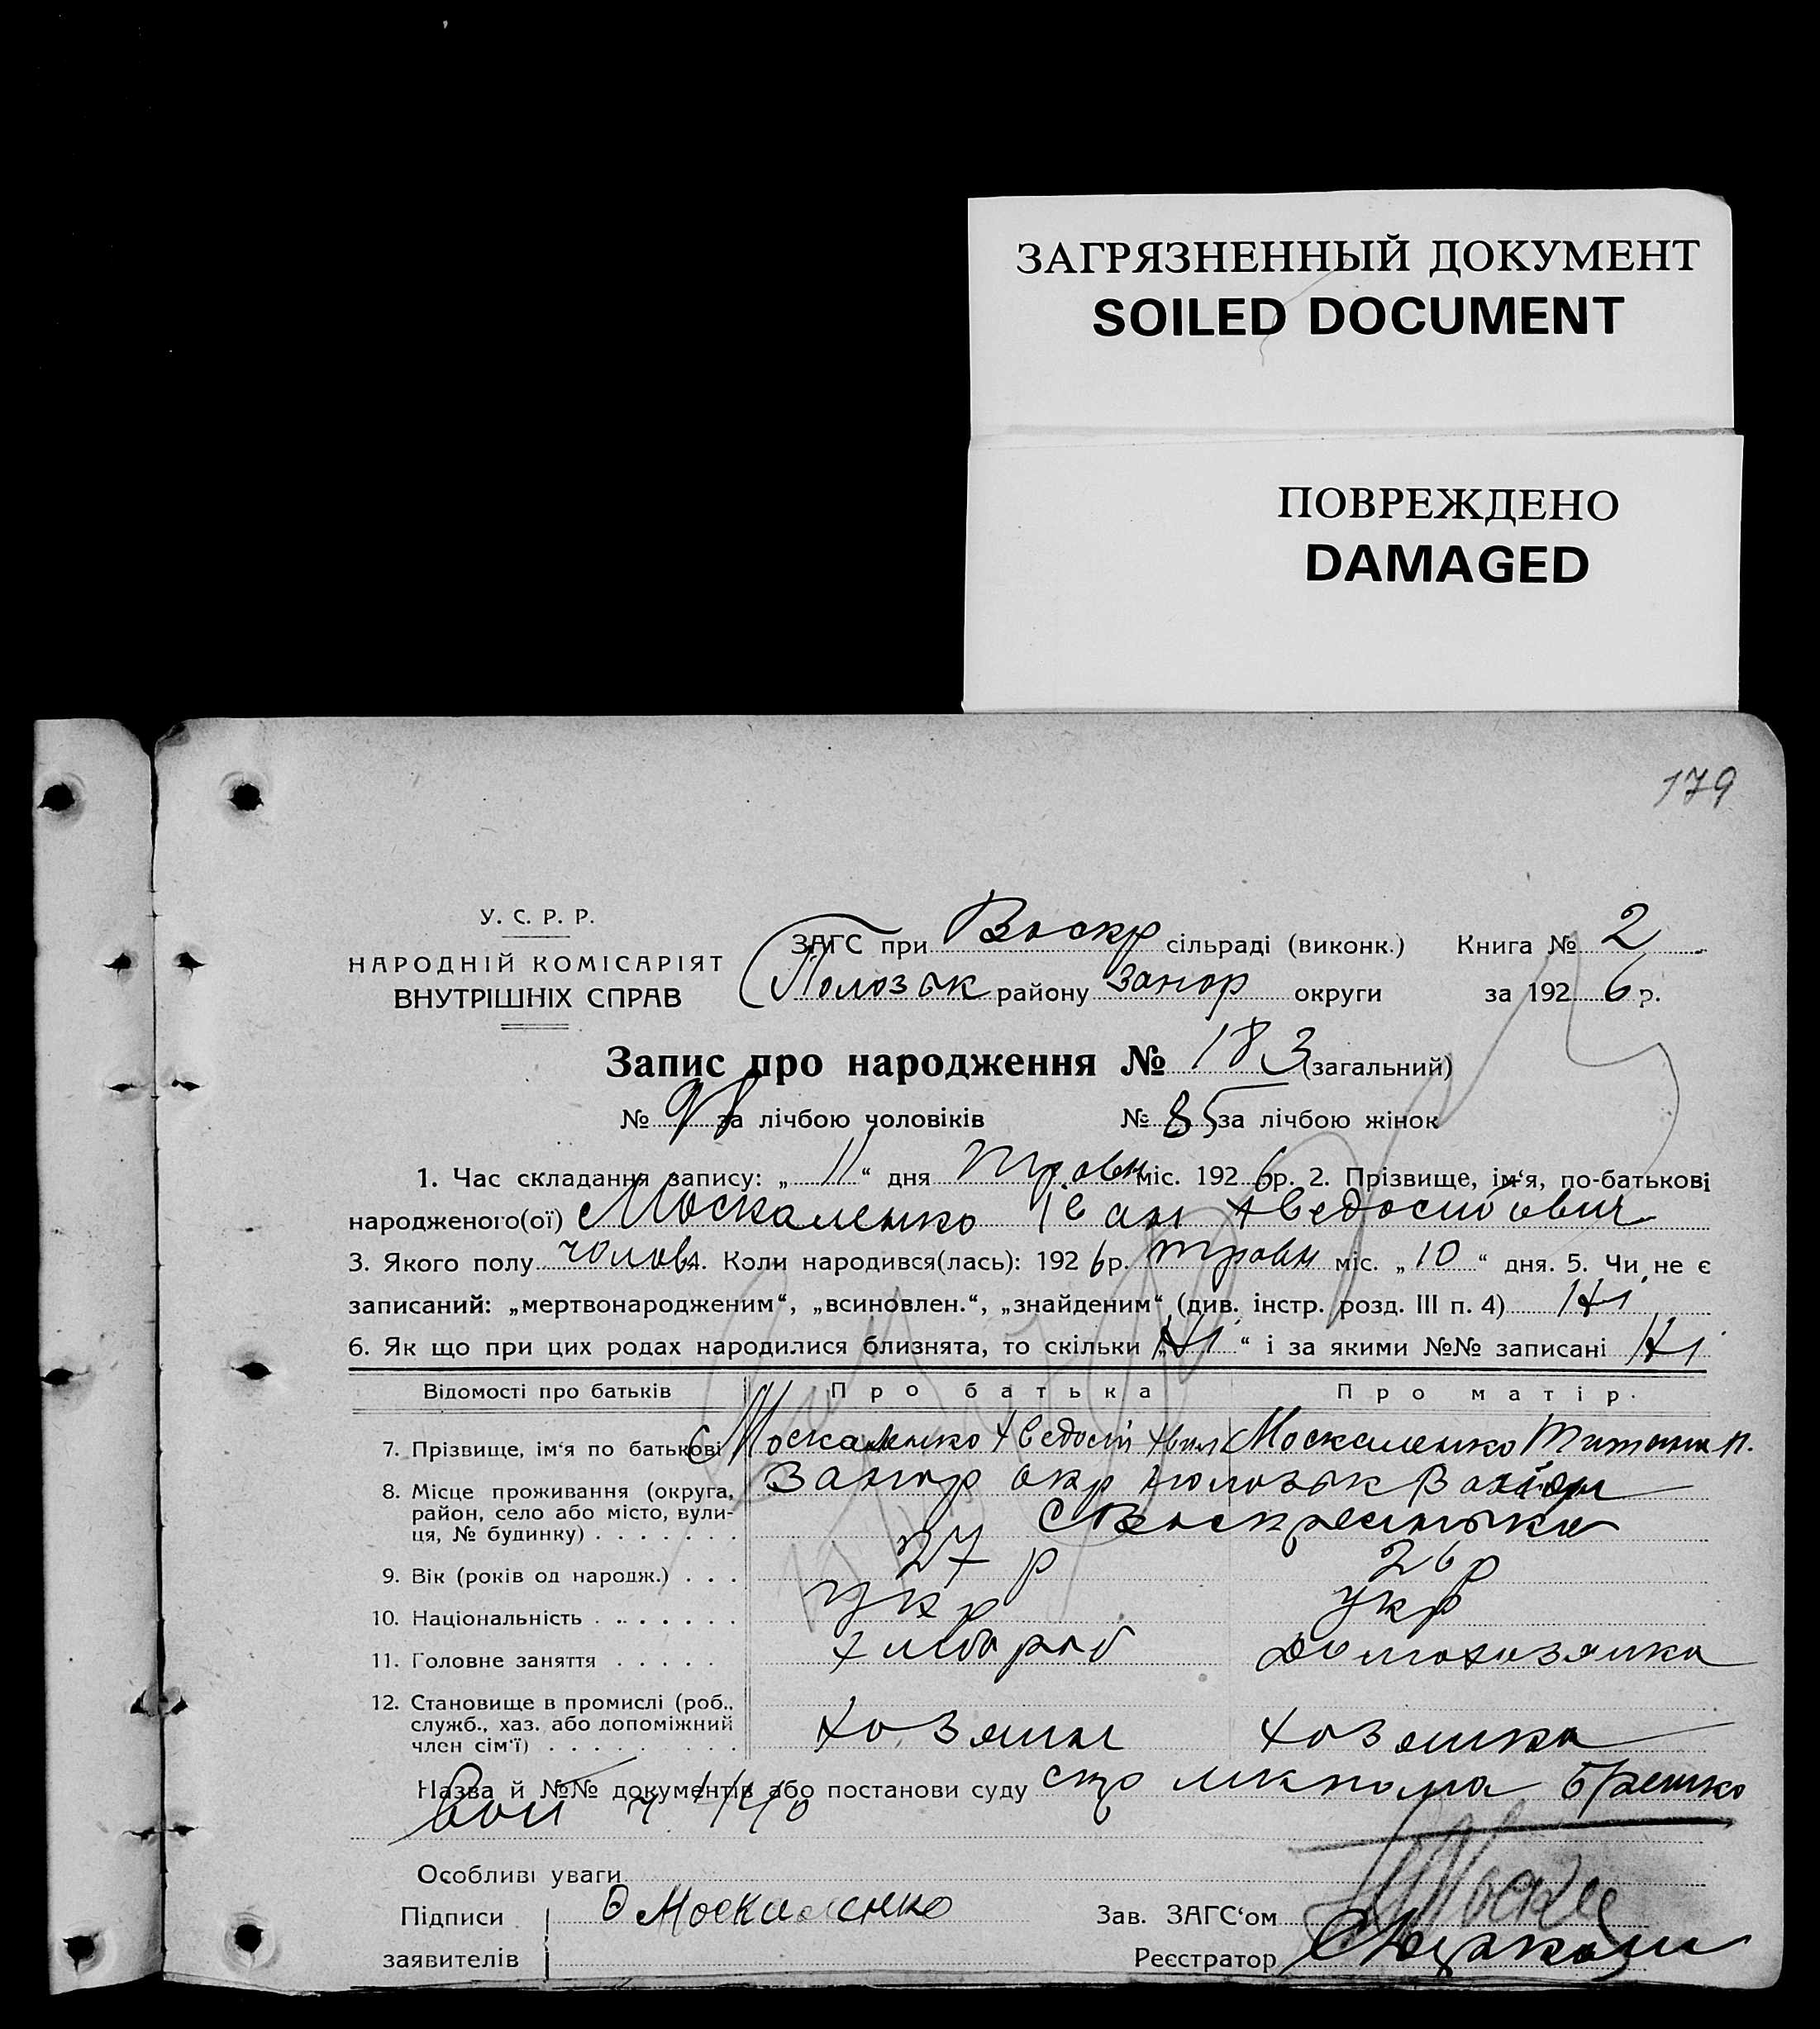 ЗАГРЯЗНЕННЫЙ ДОКУМЕНТ
SOILED DOCUMENT
ПОВРЕЖДЕНО
DAMAGED
179
У. С. Р. Р.
НАРОДНІЙ КОМІСАРІЯТ
ВНУТРІШНІХ СПРАВ
ЗАГС при Воскр сільраді (виконк.) Книга № 2
Полозьк району Запор округи за 1926 р.
Запис про народження № 183 (загальний)
№ 98 за лічбою чоловіків № 85 за лічбою жінок
1. Час складання запису: „11“ дня травн міс. 1926 р. 2. Прізвище, ім‘я, по-батькові
народженого(ої) Москаленко Іван Хведосіїович
3. Якого полу чолов 4. Коли народився(лась): 1926 р. травн міс. „10“ дня. 5. Чи не є
записаний: „мертвонародженим“, „всиновлен.“, „знайденим“ (див. інстр. розд. III п. 4) Ні
6. Як що при цих родах народилися близнята, то скільки „Ні“ і за якими №№ записані Ні
Відомості про батьків Про батька Про матір.
7. Прізвище, ім‘я по батькові Москаленко Хведосій Москаленко Титяна П.
8. Місце проживання (округа, район, село або місто, вулиця, № будинку) Запор окр Полозьк
с Воскресенька
9. Вік (років од народж.) 27 р 26 р
10. Національність укр укр
11. Головне заняття хлібораб домохозяика
12. Становище в промислі (роб., служб., хаз. або допоміжний член сім‘ї) хозяин хозяика
Назва й №№ документів або постанови суду
Особливі уваги
Підписи заявителів Ф Москаленко
Зав. ЗАГС‘ом
Реєстратор